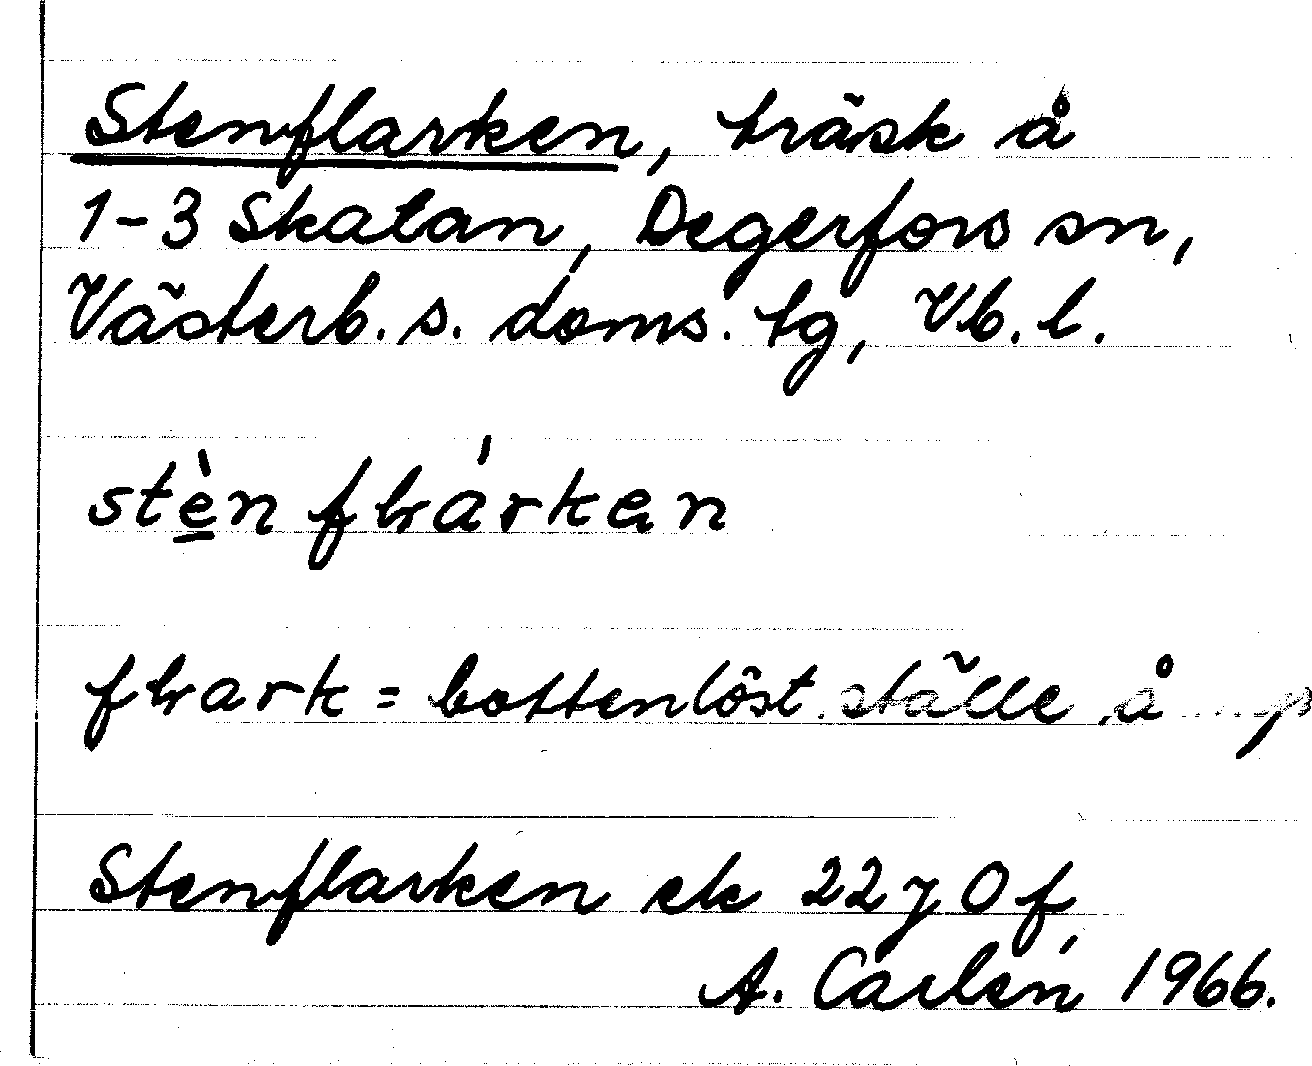 Stenflarken, träsk å
1-3 Skatan, Degerfors sn,
Västerb. s. doms. tg, Vb. l.
stèn flárkan
flark = bottenlöst ställe å
Stenflarken ek 22 7 0 f,
A. Carlén, 1966.